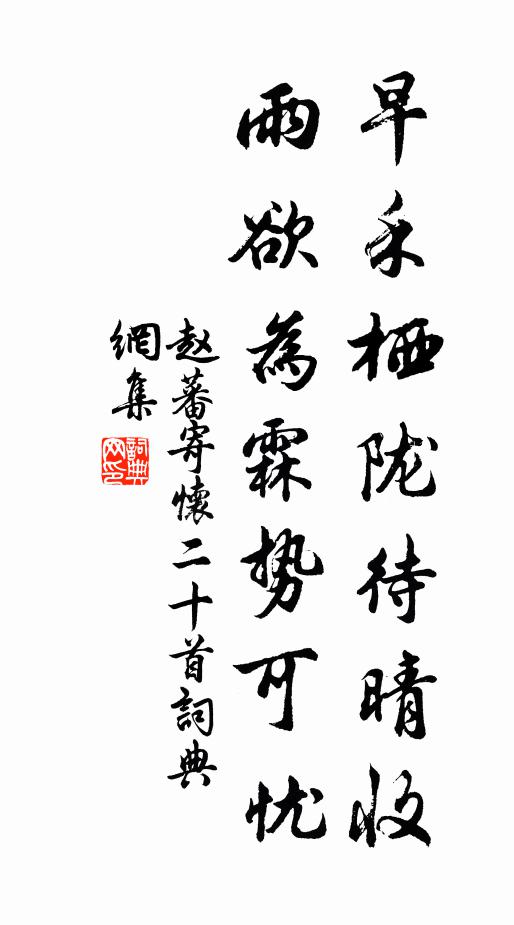 早禾栖陇待晴收
雨欲為霖势可忧
赵蕃寄懷二十首詞典
網集
詞典网印